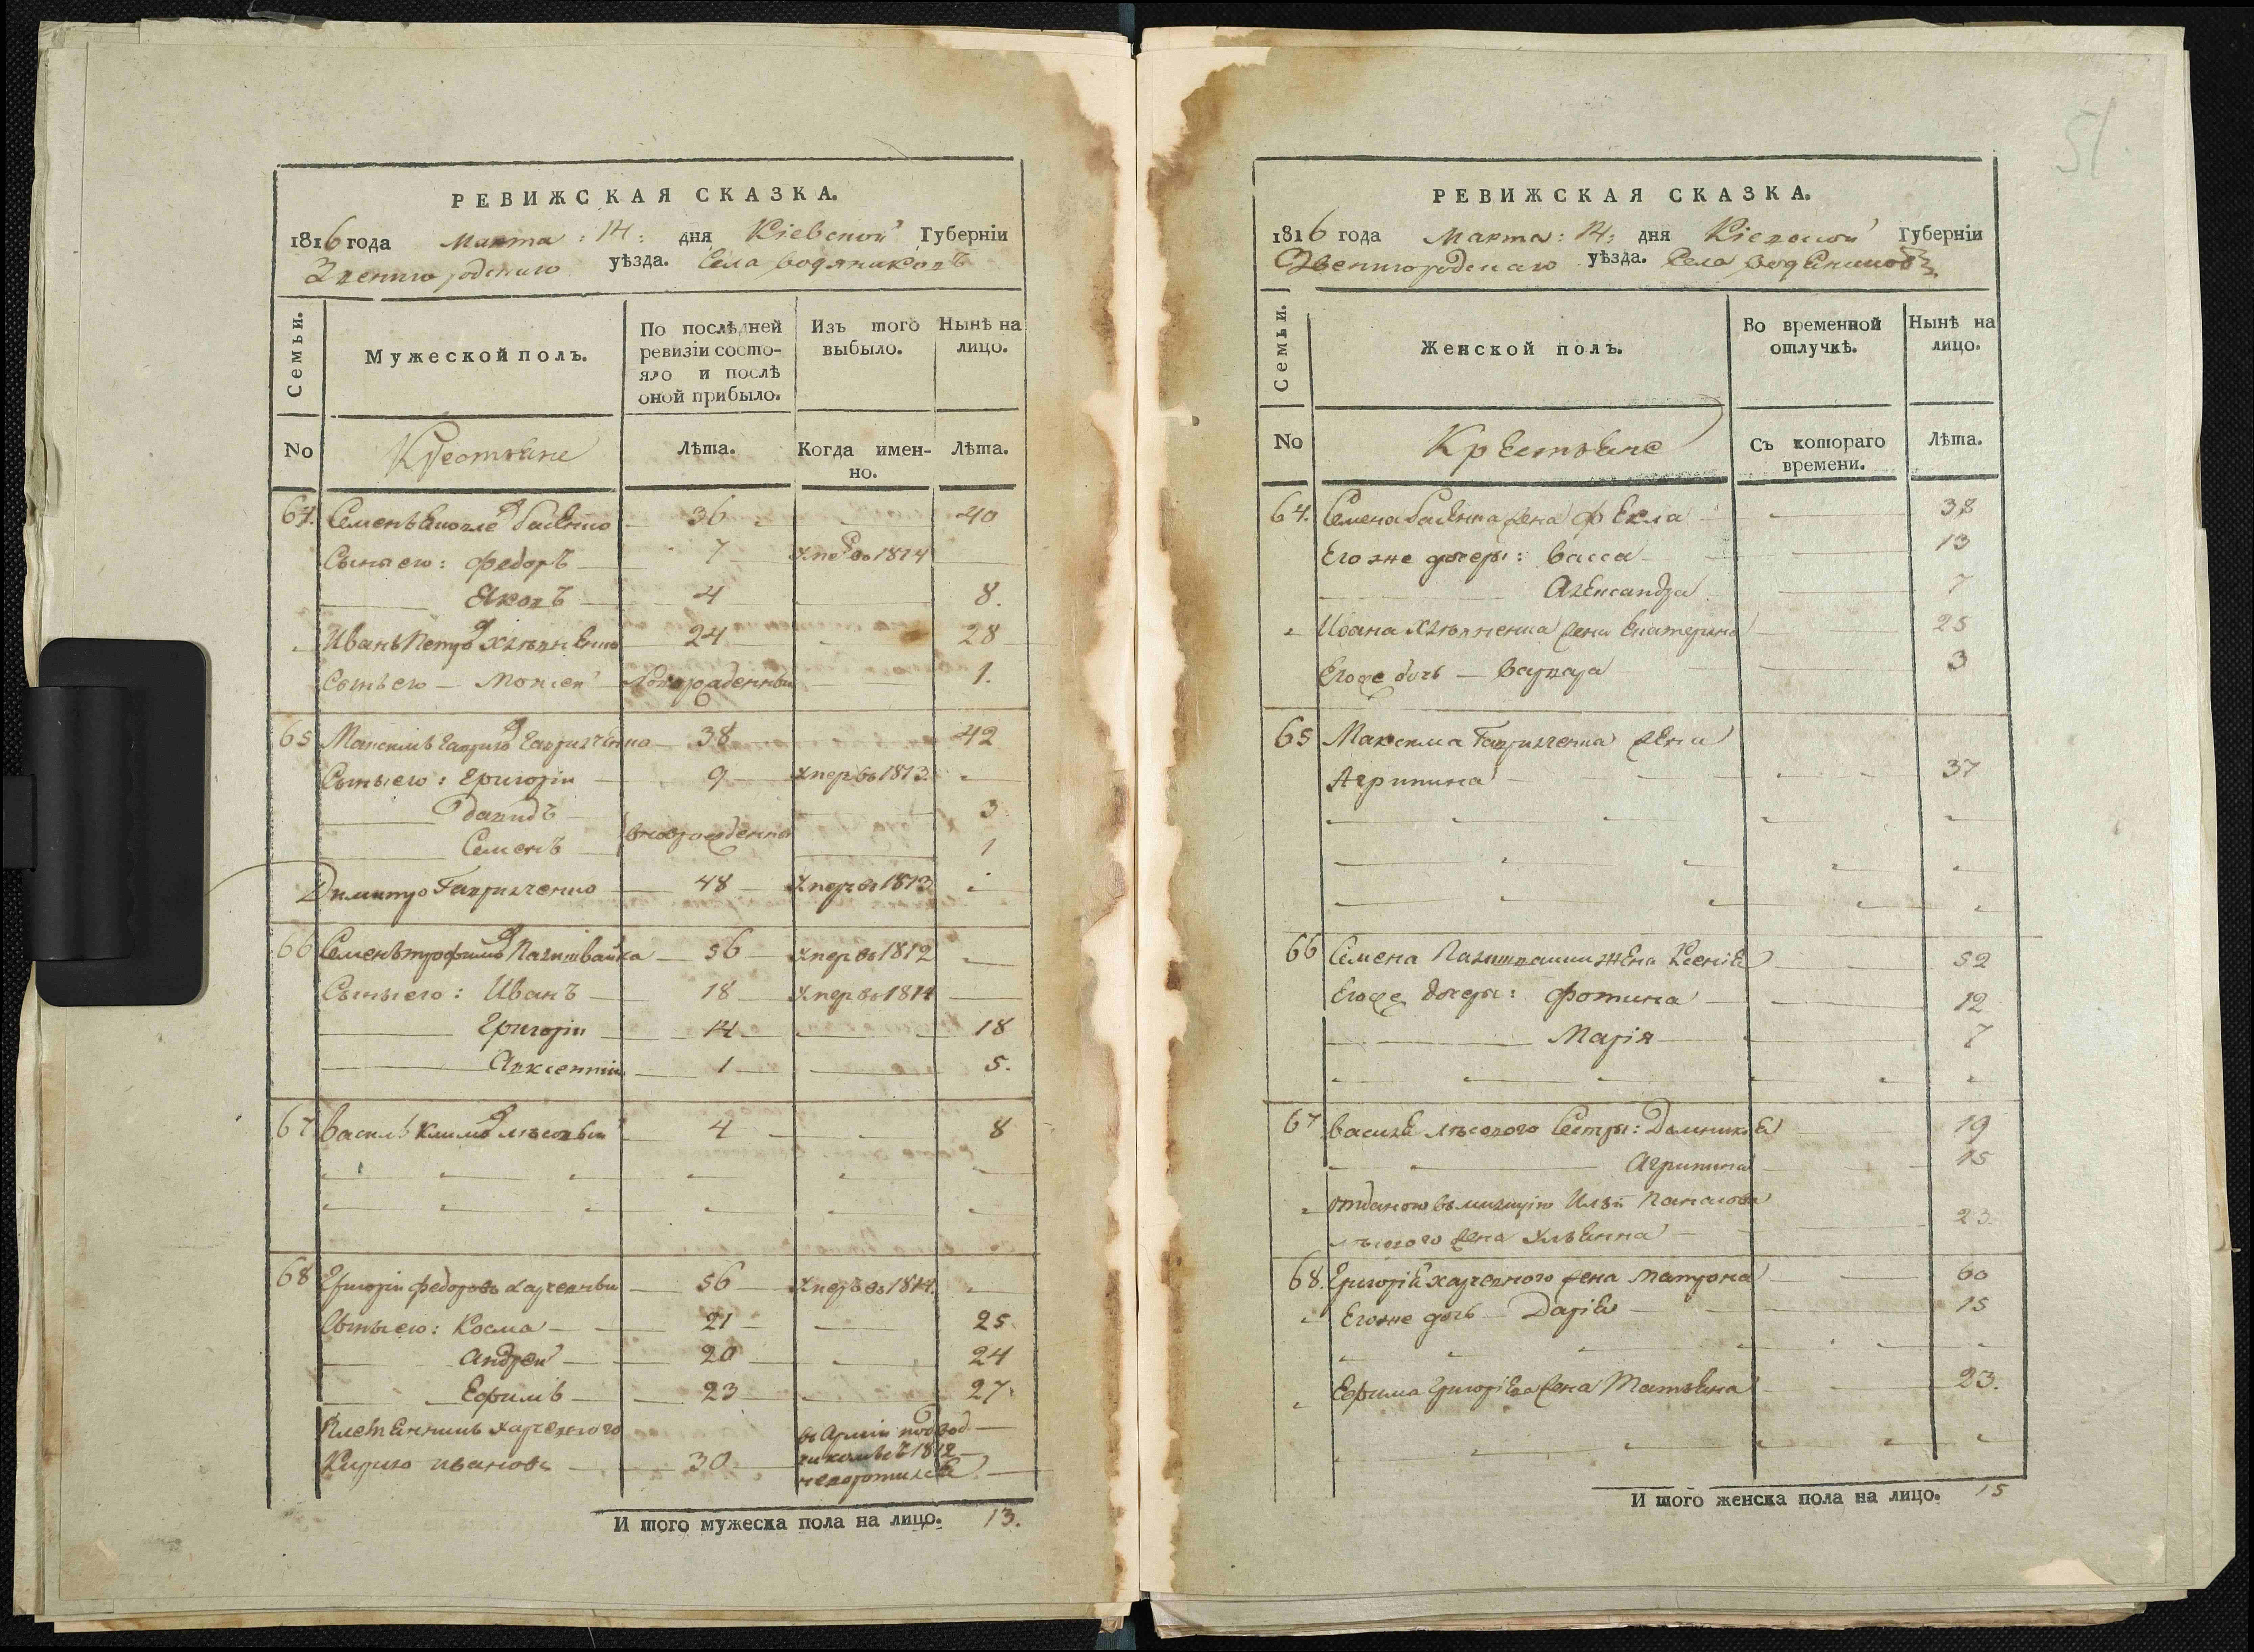 51.
РЕВИЖСКАЯ СКАЗКА.
1816 года Марта: 14: дня Кіевской Губерніи
Звенигородского уѣзда. Села водяниковъ
Семьи. Мужеской полъ. По послѣдней ревизіи состояло и послѣ оной прибыло. Изъ того выбыло. Нынѣ на лицо.
No Крестьяне Лѣта. Когда именно. Лѣта.
64. Семенъ 36 40
Сыны его: федоръ 7 1814
Яковъ 4 8.
Иванъ Петро 24 28
Сынъ его Моисей новорожденный 1.
65 Максимъ Гаврило Гавриленко 38 42
Сыны его: Григорій 9 умер во 1813
давидъ 3
Семенъ новорожденны 1
Димитро Гавриленко 48 умер во 1813
66 Семенъ трофимъ 56 умер во 1812
Сыны его: Иванъ 18 умер во 1814
Григорій 14 18
Авксентій 1 5.
67 Василь Климъ лѣсовый 4 8
68 Григорій федоровъ харчевный 56 умеръ во 1814.
Сыны его: Косма 21 25
Андрей 20 24
Ефимъ 23 27
Племенникъ харчевного
Кирило Ивановъ 30 въ Армію 1812
И того мужеска пола на лицо. 13.
РЕВИЖСКАЯ СКАЗКА.
1816 года Марта: 14: дня Кіевской Губерніи
Звенигородскаго уѣзда. Села водяниковъ
Семьи. Женской полъ. Во временной отлучкѣ. Нынѣ на лицо.
No Крестьяне Съ котораго времени. Лѣта.
64. Семена жена фекла 38
Его же дочеры: васса 13
Александра 7
Ивана жена Екатерина 25
Его же дочь Варвара 3
65 Максима Гавриленка жена
Агрипина 37
66 Семена жена Ксенія 52
Его же дочеры: фотина 12
Марія 7
67 василя лѣсового Сестры: Домникія 19
Агрипина 15
отданого въ милицію Ильи Панасова
лѣсового жена Ульянна 23.
68. Григорія харчевного жена Матрона 60
Его же дочь Дарія 15
Ефима Григоріева жена Татьяна 23.
И того женска пола на лицо. 15